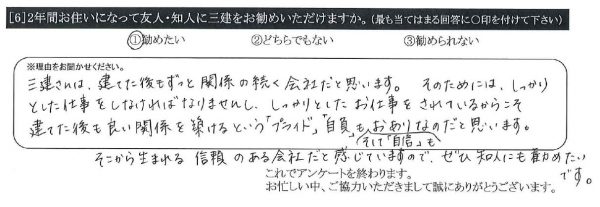 [6]2年間お住いになって友人・知人に三建をお勧めいただけますか。(最も当てはまる回答に○印を付けて下さい)
①勧めたい ②どちらでもない ③勧められない
※理由をお聞かせください。
三建さんは、建てた後もずっと関係の続く会社だと思います。そのためには、しっかり
とした仕事をしなければなりませんし、しっかりとしたお仕事をされているからこそ
建てた後も良い関係を築けるという「プライド」「自負」もおありなのだと思います。
そして「自信」も
そこから生まれる信頼のある会社だと感じていますので、ぜひ知人にも勧めたい
です。
これでアンケートを終わります。
お忙しい中、ご協力いただきまして誠にありがとうございます。